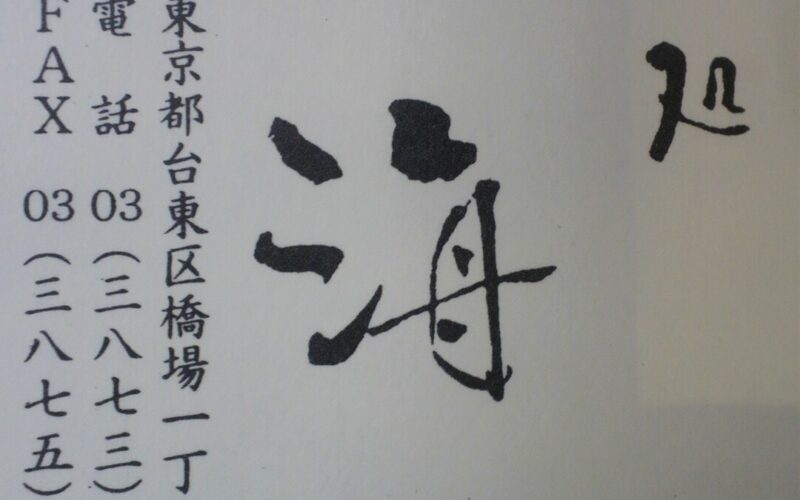 処
海
東京都台東区橋場一丁
電話 03(三八七三)
FAX 03(三八七五)